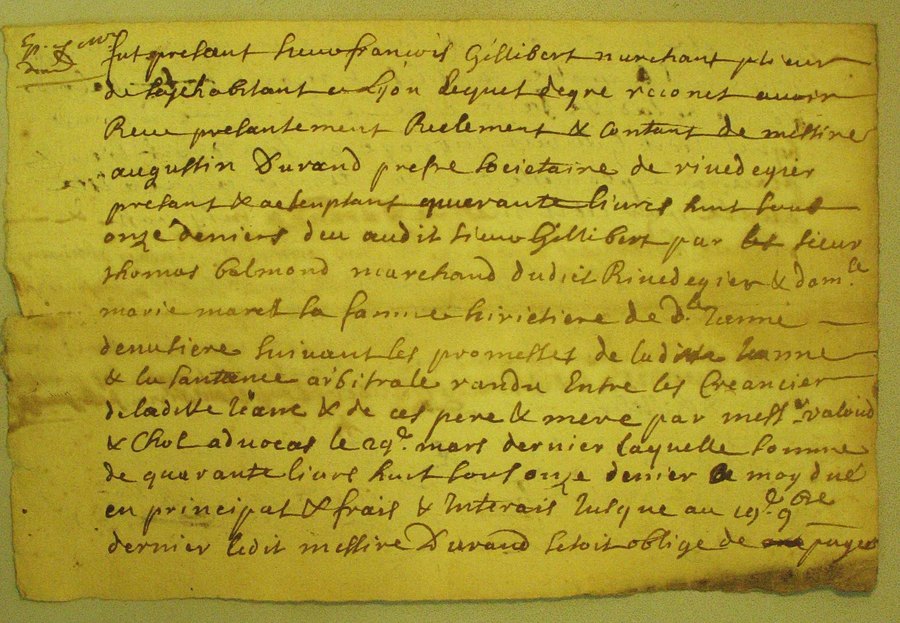 fut presant sieur francois Gillibert marchant plieur
de soye habitant a Lyon lequel de gre reconet avoir
Receu presantement Reelement & contant de messire
augustin Durand prestre societaire de rivedegier
presant & acseuptant quarante livres huit soub
onze deniers deu audit sieur Gillibert par les sieur
thomas balmond marchand dudict Rivedegier & dam.lle
marie maret sa famme hirietiere de d.lle Jeanne
suivant les promesses de laditte Jeanne
& la santance arbitrale randu Entre les Creancier
de laditte & de ces pere & mere par mess.rs valoud
& Chol advocas le 29.e mars dernier laquelle somme
de quarante livres huit soul onze denier de moy dué
en principal & frais & Interais Jusque au 19.e 9bre
dernier ledit messire Durand setoit oblige de payer